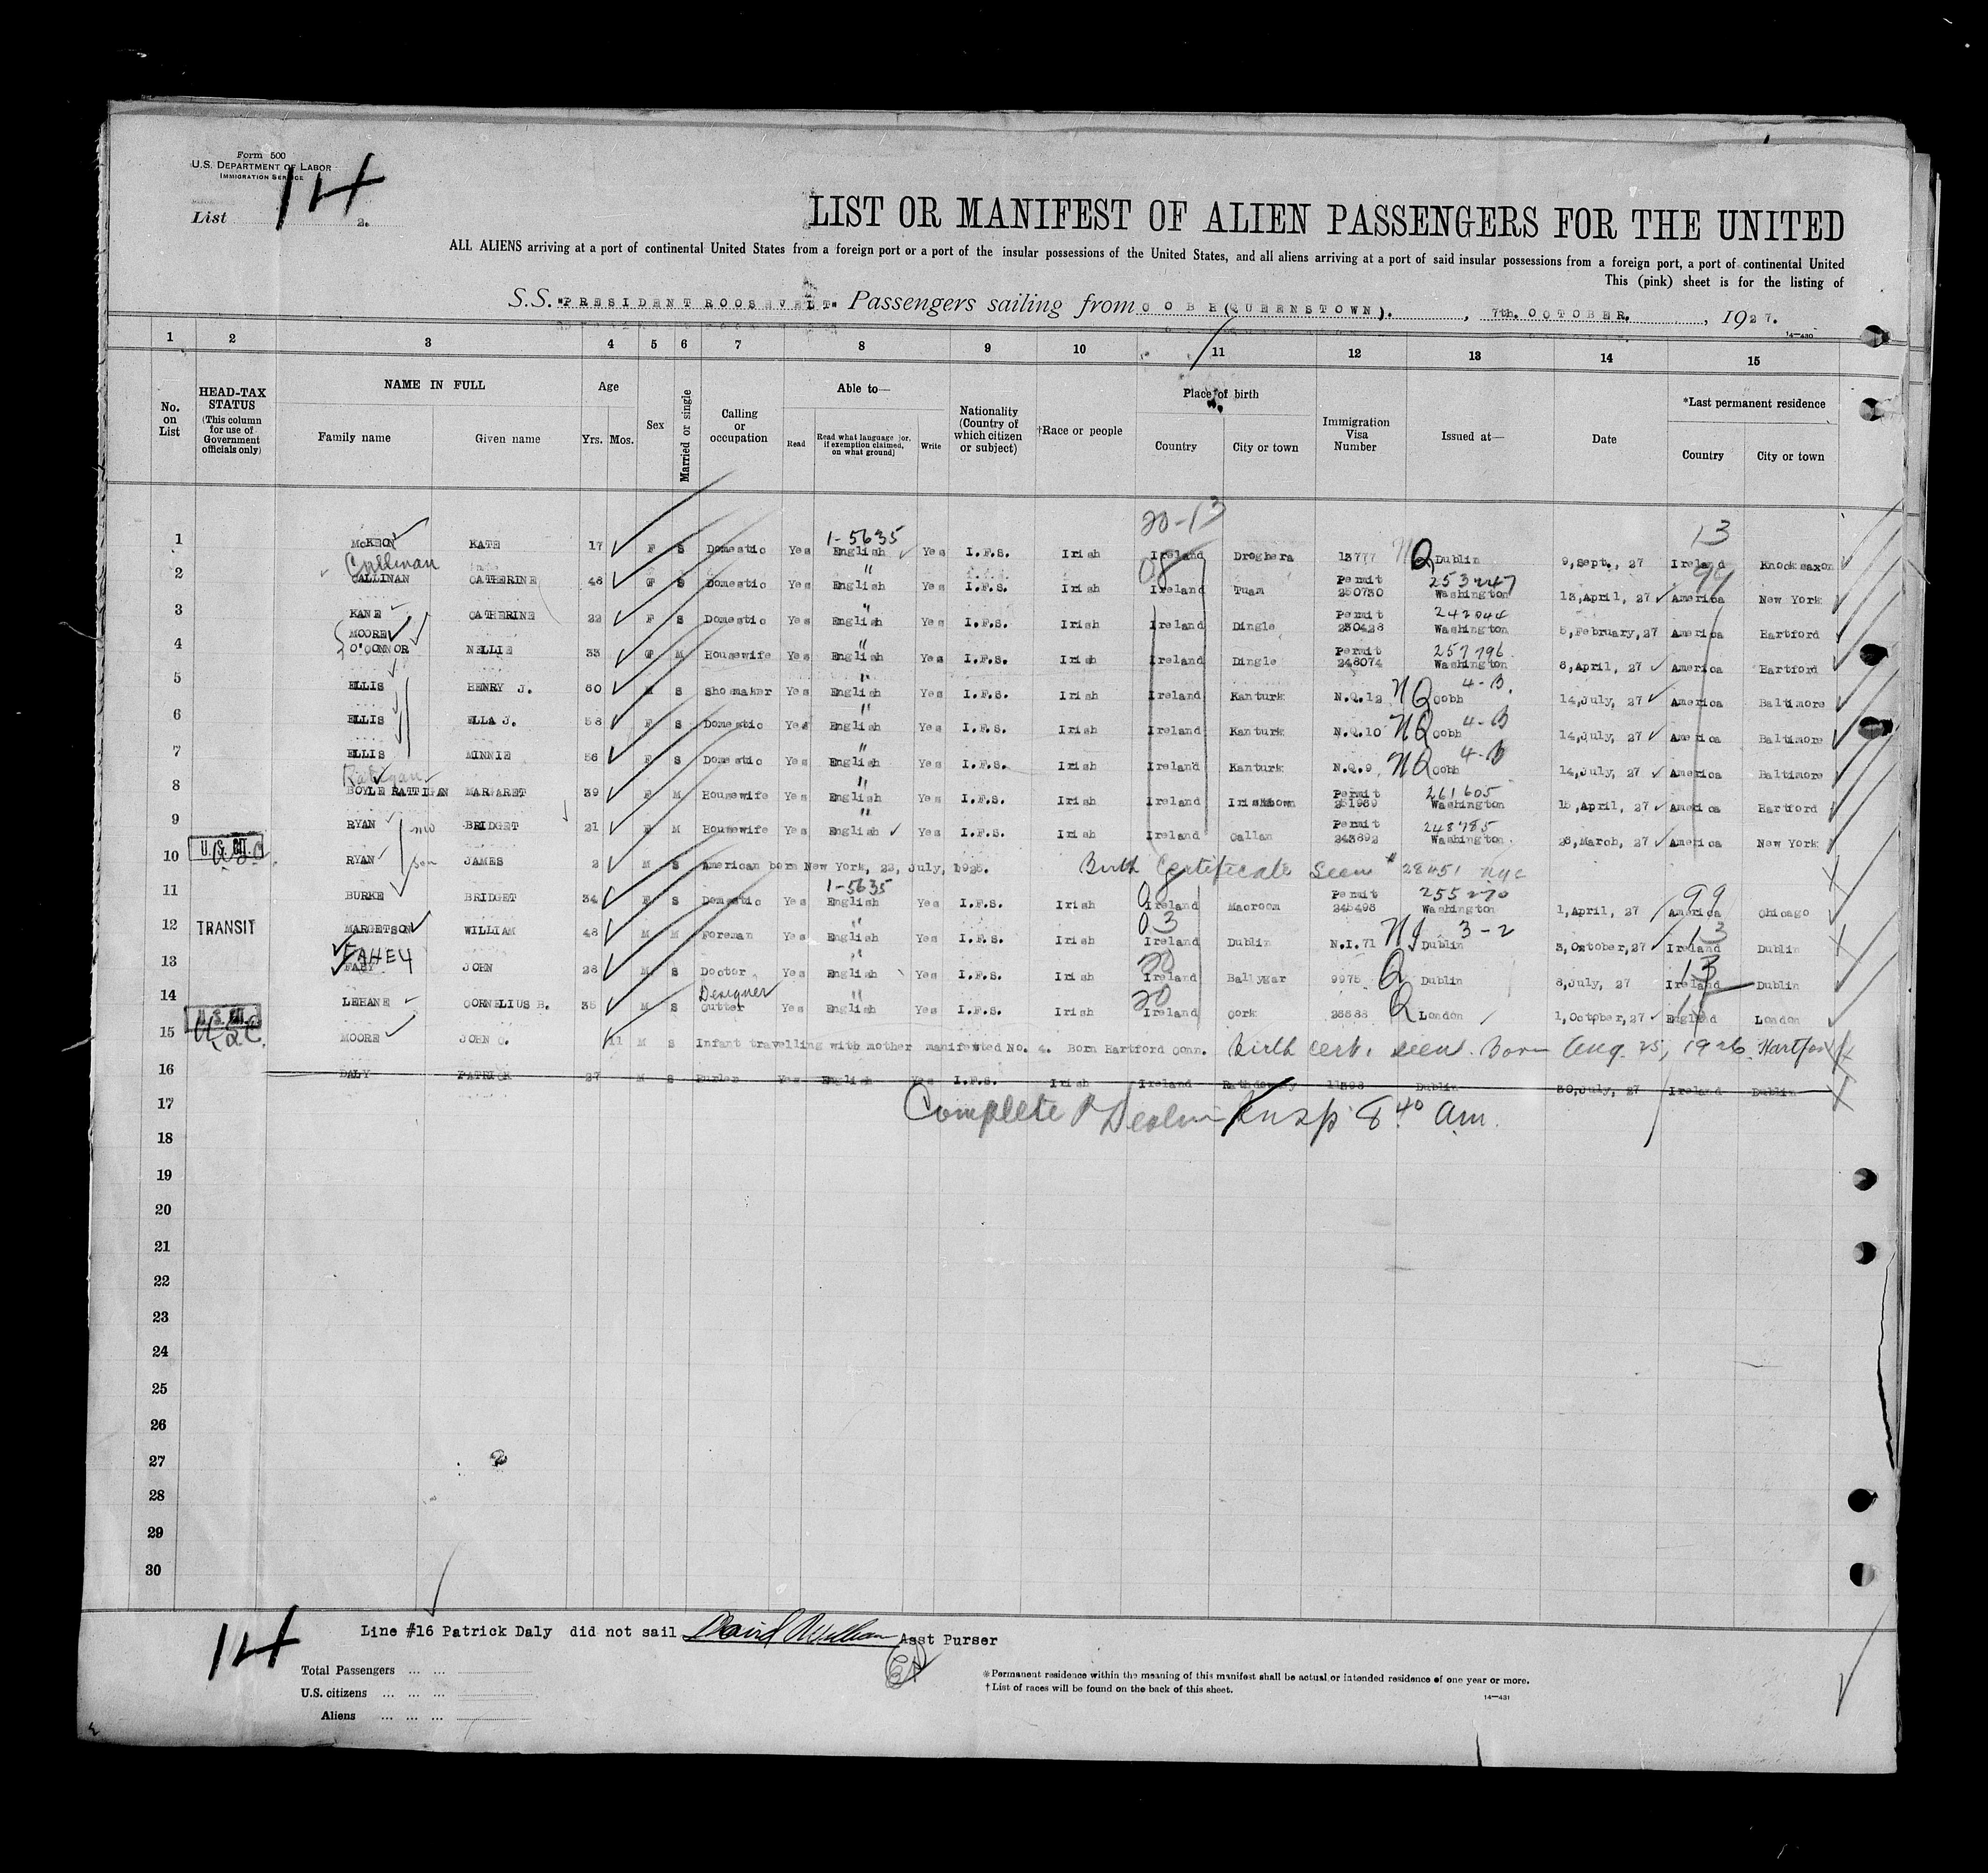 Form 500
U.S. DEPARTMENT OF LABOR
IMMIGRATION SERVICE
List 14 2.
LIST OR MANIFEST OF ALIEN PASSENGERS FOR THE UNITED
ALL ALIENS arriving at a port of continental United States from a foreign port or a port of the insular possessions of the United States, and all aliens arriving at a port of said insular possessions from a foreign port, a port of continental United
This (pink) sheet is for the listing of
S.S. "PRESIDENT ROOSEVELT" Passengers sailing from COBH (QUEENSTOWN). , 7th. OCTOBER. , 1927.
14—430
1 2 3 4 5 6 7 8 9 10 11 12 13 14 15
No. on List
HEAD-TAX STATUS (This column for use of Government officials only)
NAME IN FULL
Family name Given name
Age
Yrs. Mos.
Sex
Married or single
Calling or occupation
Able to—
Read Read what language [or, if exemption claimed, on what ground] Write
Nationality (Country of which citizen or subject)
†Race or people
Place of birth
Country City or town
Immigration Visa Number
Issued at—
Date
*Last permanent residence
Country City or town
20-13
1-5635 13
1 McKEON KATE 17 F S Domestic Yes English Yes I.F.S. Irish Ireland Droghera 13777 NQ Dublin 9,Sept., 27 Ireland Knocksaxon
Cullinan " 08 Permit 253247 99
2 CALLINAN CATHERINE 48 F S Domestic Yes English Yes I.F.S. Irish Ireland Tuam 250730 Washington 13,April, 27 America New York
" Permit 242044
3 KANE CATHERINE 22 F S Domestic Yes English Yes I.F.S. Irish Ireland Dingle 230428 Washington 5,February,27 America Hartford
MOORE " Permit 257796
4 O'CONNOR NELLIE 33 F M Housewife Yes English Yes I.F.S. Irish Ireland Dingle 248074 Washington 6,April, 27 America Hartford
" 4-B.
5 ELLIS HENRY J. 60 M S Shoemaker Yes English Yes I.F.S. Irish Ireland Kanturk N.Q.12 NQ Cobh 14,July, 27 America Baltimore
" 4-B
6 ELLIS ELLA J. 58 F S Domestic Yes English Yes I.F.S. Irish Ireland Kanturk N.Q.10 NQ Cobh 14,July, 27 America Baltimore
" 4-B
7 ELLIS MINNIE 56 F S Domestic Yes English Yes I.F.S. Irish Ireland Kanturk N.Q.9 NQ Cobh 14,July, 27 America Baltimore
Ratigan " Permit 261605
8 BOYLE RATTIGAN MARGARET 39 F M Housewife Yes English Yes I.F.S. Irish Ireland Irishtown 251969 Washington 18,April, 27 America Hartford
" Permit 248785
9 RYAN mo BRIDGET 21 F M Housewife Yes English Yes I.F.S. Irish Ireland Callan 243892 Washington 28,March, 27 America New York
10 U.S. CIT. RYAN son JAMES 2 M S American born New York, 22, July, 1925. Birth Certificate Seen #28451 NYC
1-5635 Permit 255270 99
11 BURKE BRIDGET 34 F S Domestic Yes English Yes I.F.S. Irish Ireland Macroom 245498 Washington 1,April, 27 America Chicago
" 03 3-2 13
12 TRANSIT MARGETSON WILLIAM 48 M M Foreman Yes English Yes I.F.S. Irish Ireland Dublin N.I.71 NI Dublin 3,October,27 Ireland Dublin
FAHEY " 20 13
13 FAHY JOHN 28 M S Doctor Yes English Yes I.F.S. Irish Ireland Ballygar 9975 Q Dublin 8,July, 27 Ireland Dublin
Designer " 20
14 LEHANE CORNELIUS B. 35 M S Cutter Yes English Yes I.F.S. Irish Ireland Cork 28888 Q London 1,October,27 England London
15 U.S. CIT. MOORE JOHN C. 11 M S Infant travelling with mother manifested No. 4. Born Hartford Conn. Birth cert. seen. Born Aug 25, 1926 Hartford
16 DALY PATRICK 27 M S Yes English Yes I.F.S. Irish Ireland Rathdowney 11398 Dublin 30,July, 27 Ireland Dublin
17 Complete Insp 8 40 am.
18
19
20
21
22
23
24
25
26
27
28
29
30
14
Line #16 Patrick Daly did not sail Asst Purser
Total Passengers ... ...
U.S. citizens ... ... ...
Aliens ... ... ...
*Permanent residence within the meaning of this manifest shall be actual or intended residence of one year or more.
†List of races will be found on the back of this sheet.
14—431